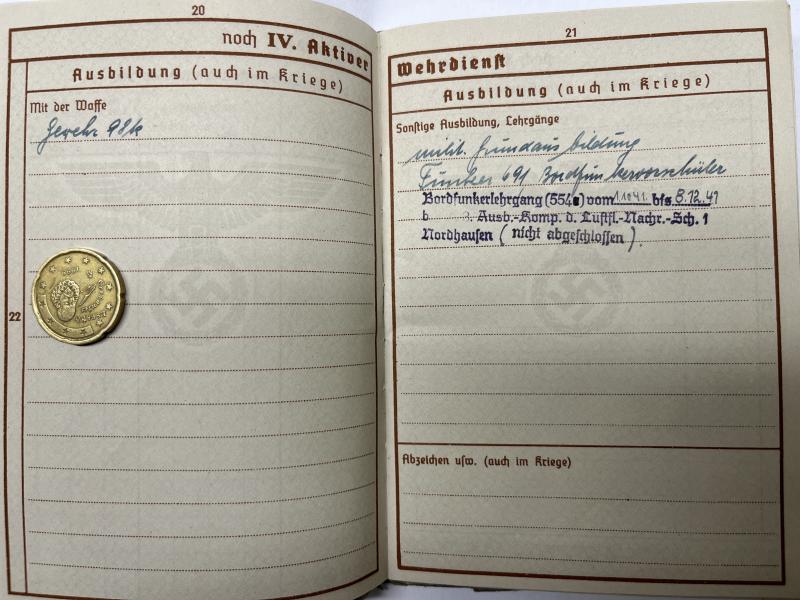 20
noch IV. Aktiver
Ausbildung (auch im Kriege)
Mit der Waffe
Gewehr 98k
22
21
Wehrdienst
Ausbildung (auch im Kriege)
Sonstige Ausbildung, Lehrgänge
milit. Grundausbildung
Funker 691 Bordfunkervorschüler
Bordfunkerlehrgang (554) vom 1.10.41. bis 8.12.41
b. Ausb.-Komp. d. Luftfl.-Nachr.-Sch. 1
Nordhausen (nicht abgeschlossen).
Abzeichen usw. (auch im Kriege)